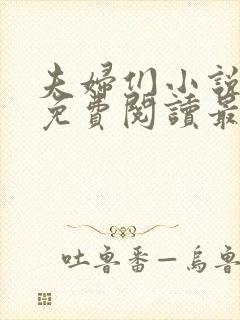 夫婦们小說
免費閱讀最
吐魯番—烏魯